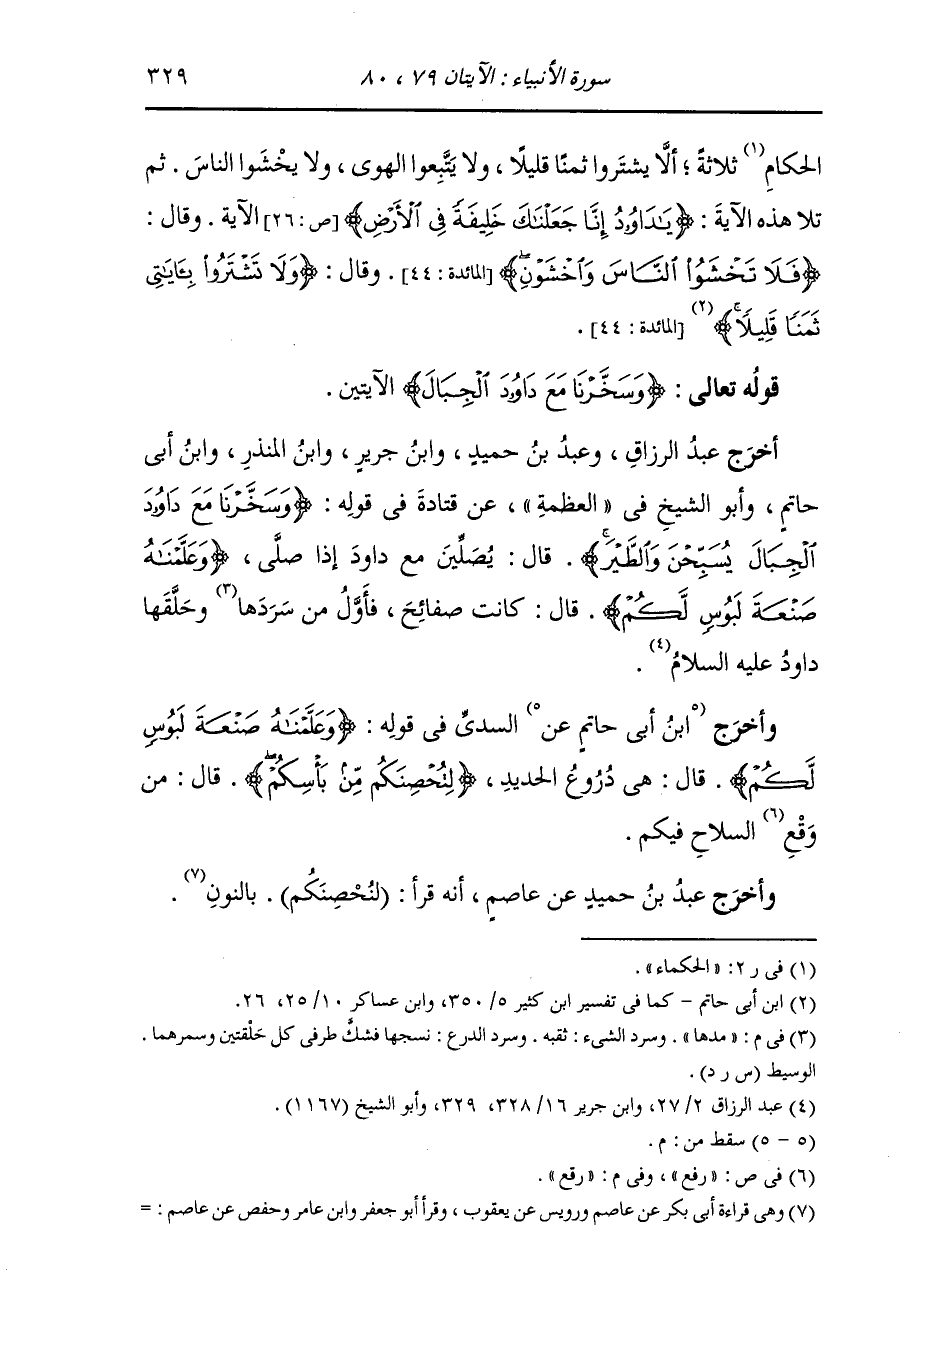 سورة الأنبياء : الآيتان ٧٩ ، ٨٠ ٣٢٩
الحكامِ(١) ثلاثةً ؛ ألَّا يشتَروا ثمنًا قليلًا ، ولا يَتَّبِعوا الهوى ، ولا يخْشَوا الناسَ . ثم
تلا هذه الآيةَ : ﴿يَٰدَاوُۥدُ إِنَّا جَعَلْنَٰكَ خَلِيفَةً فِى ٱلْأَرْضِ﴾ [ص : ٢٦] الآية . وقال :
﴿فَلَا تَخْشَوُا۟ ٱلنَّاسَ وَٱخْشَوْنِۖ﴾ [المائدة : ٤٤] . وقال : ﴿وَلَا تَشْتَرُوا۟ بِـَٔايَٰتِى
ثَمَنًا قَلِيلًاۚ﴾(٢) [المائدة : ٤٤] .
قولُه تعالى : ﴿وَسَخَّرْنَا مَعَ دَاوُۥدَ ٱلْجِبَالَ﴾ الآيتين .
أخرَج عبدُ الرزاقِ ، وعبدُ بنُ حميدٍ ، وابنُ جريرٍ ، وابنُ المنذرِ ، وابنُ أبى
حاتمٍ ، وأبو الشيخِ فى « العظمةِ » ، عن قتادةَ فى قولِه : ﴿وَسَخَّرْنَا مَعَ دَاوُۥدَ
ٱلْجِبَالَ يُسَبِّحْنَ وَٱلطَّيْرَۚ﴾ . قال : يُصَلِّينَ مع داودَ إذا صلَّى ، ﴿وَعَلَّمْنَٰهُ
صَنْعَةَ لَبُوسٍ لَّكُمْ﴾ . قال : كانت صفائحَ ، فأَوَّلُ من سَرَدَها(٣) وحَلَّقَها
داودُ عليه السلامُ(٤) .
وأخرَج (٥ابنُ أبى حاتمٍ عن٥) السدىِّ فى قولِه : ﴿وَعَلَّمْنَٰهُ صَنْعَةَ لَبُوسٍ
لَّكُمْ﴾ . قال : هى دُرُوعُ الحديدِ ، ﴿لِتُحْصِنَكُم مِّنۢ بَأْسِكُمْۖ﴾ . قال : من
وَقْعِ(٦) السلاحِ فيكم .
وأخرَج عبدُ بنُ حميدٍ عن عاصمٍ ، أنه قرأ : (لنُحْصِنَكُم) . بالنونِ(٧) .
(١) فى ر ٢: « الحكماء» .
(٢) ابن أبى حاتم – كما فى تفسير ابن كثير ٥/ ٣٥٠، وابن عساكر ١٠/ ٢٥، ٢٦.
(٣) فى م : « مدها » . وسرد الشىء : ثقبه . وسرد الدرع : نسجها فشكَّ طرفى كل حَلْقتين وسمرهما .
الوسيط (س ر د) .
(٤) عبد الرزاق ٢/ ٢٧، وابن جرير ١٦/ ٣٢٨، ٣٢٩، وأبو الشيخ (١١٦٧) .
(٥ – ٥) سقط من : م .
(٦) فى ص : « رفع» ، وفى م : « رقع» .
(٧) وهى قراءة أبى بكر عن عاصم ورويس عن يعقوب ، وقرأ أبو جعفر وابن عامر وحفص عن عاصم : =